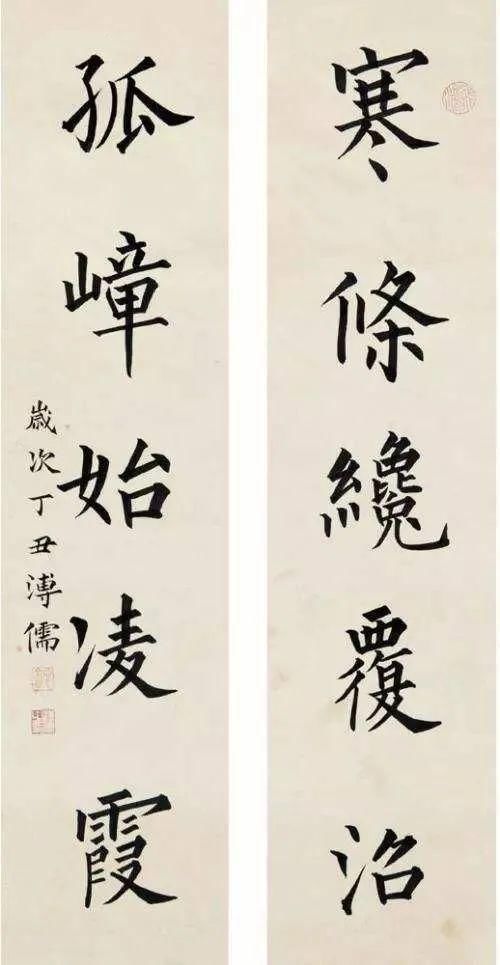 寒條纔覆沼
孤嶂始凌霞
歲次丁丑溥儒